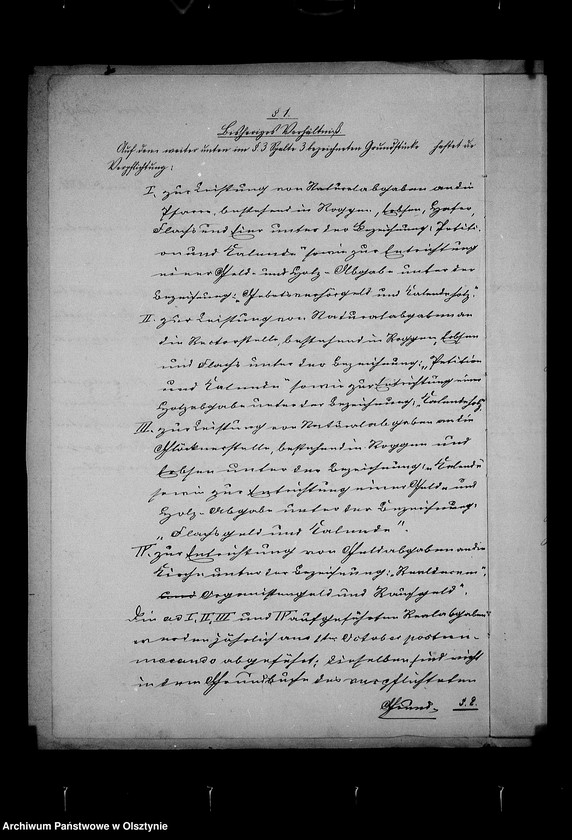 § 1.
Bisheriges Verhältniß
Auf dem weiter unten im § 3 Spalte 3 bezeichneten Grundstücke haftet die
Verpflichtung:
I. zur Leistung von Naturalabgaben an die
Pfarre, bestehend in Roggen, Erbsen, Hafer,
Flachs und Eier unter der Bezeichnung: "Petiti-
on und Kalende" sowie zur Entrichtung
einer Geld- und Holz-Abgabe unter der
Bezeichnung: "Gebetsverhörgeld und Kalendeholz".
II. zur Leistung von Naturalabgaben an
die Rectorstelle, bestehend in Roggen, Erbsen
und Flachs unter der Bezeichnung: "Petition
und Kalende" sowie zur Entrichtung einer
Holzabgabe unter der Bezeichnung: "Kalendeholz"
III. zur Leistung von Naturalabgaben an die
Glöcknerstelle, bestehend in Roggen und
Erbsen unter der Bezeichnung: "Kalende"
sowie zur Entrichtung einer Geld- und
Holz-Abgabe unter der Bezeichnung:
"Flachsgeld und Kalende".
IV. zur Entrichtung von Geldabgaben an die
Kirche unter der Bezeichnung: "Realdecem",
Organistengeld und Rauchgeld".
Die ad I, II, III und IV aufgeführten Realabgaben
werden jährlich am 1ten October postnu-
merando abgeführt; dieselben sind nicht
in dem Grundbuche des verpflichteten
Grund- § 2.
Archiwum Państwowe w Olsztynie